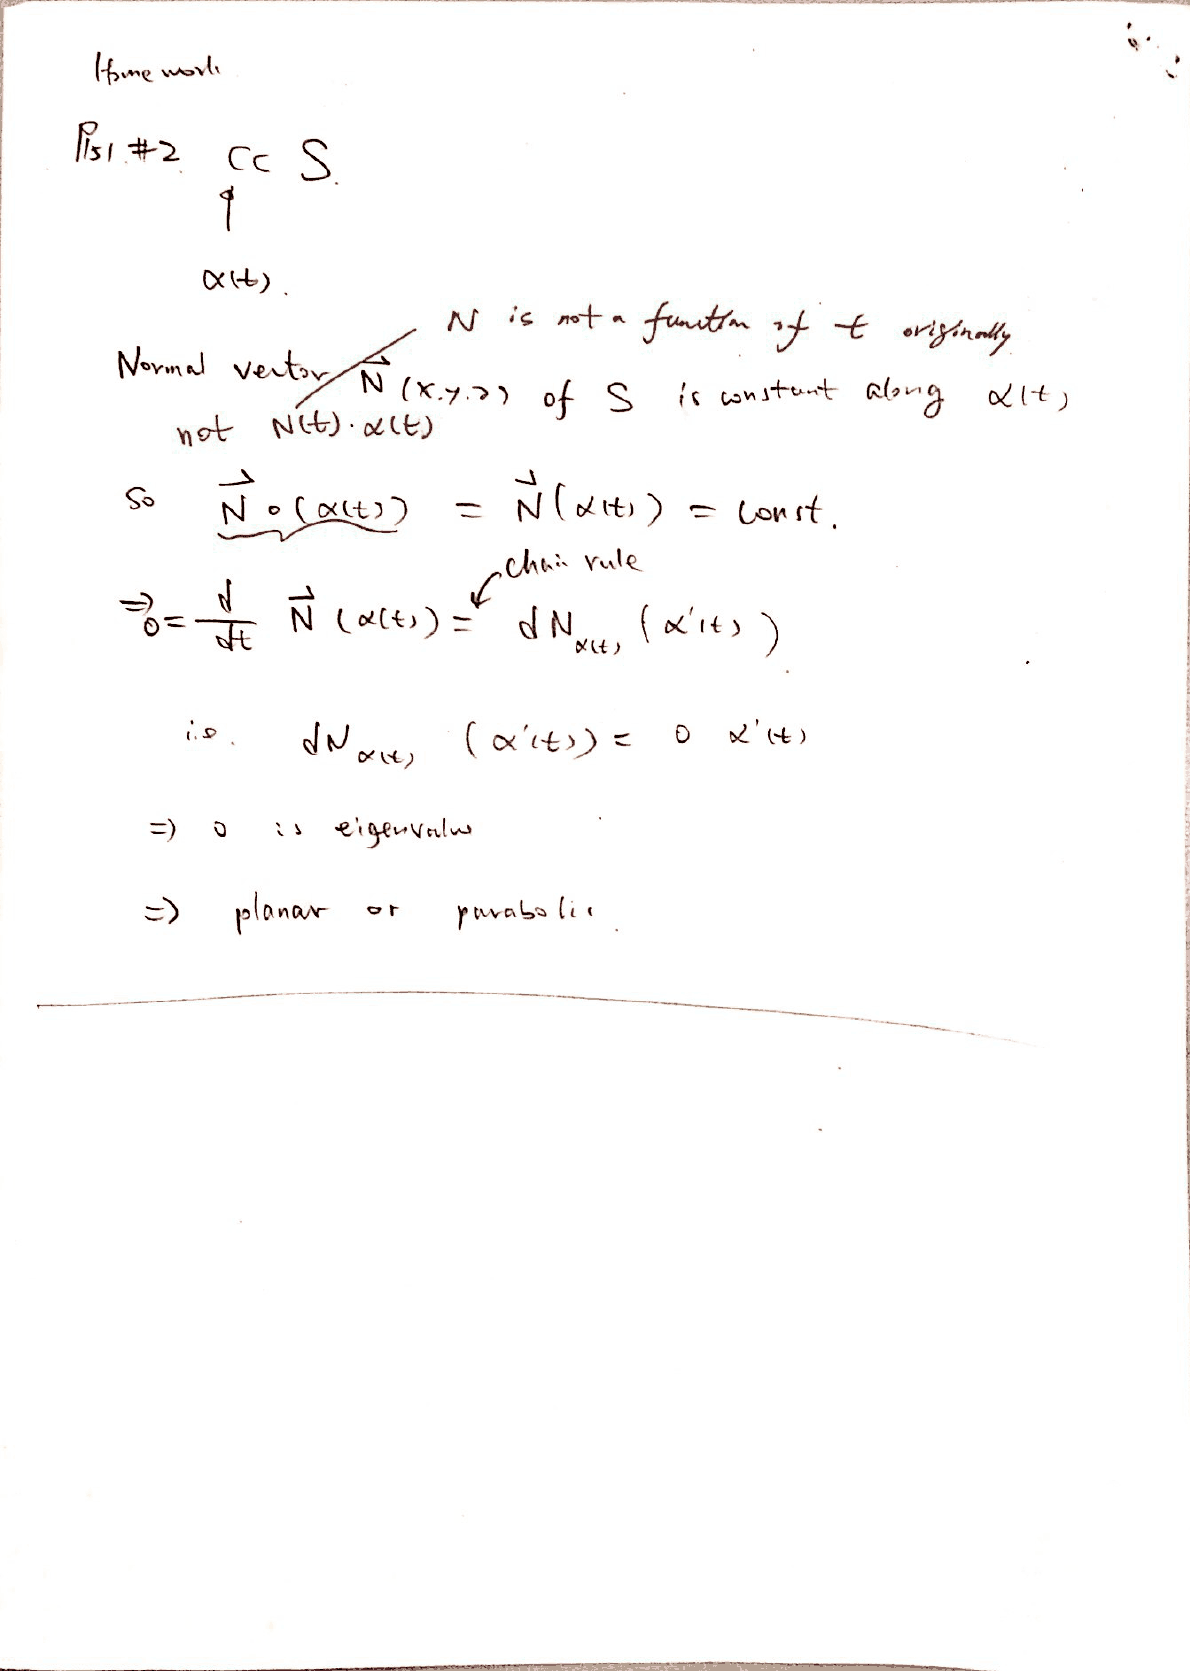 Homework
P151 #2 C⊂ S.
α(t).
N is not a function of t originally
Normal vector N⃗ (x.y.z) of S is constant along α(t)
not N(t)·α(t)
so N⃗ ∘(α(t)) = N⃗(α(t)) = const.
chain rule
⇒ 0 = d/dt N⃗ (α(t)) = dN_α(t) (α'(t))
i.e. dN_α(t) (α'(t)) = 0 α'(t)
⇒ 0 is eigenvalue
⇒ planar or parabolic.